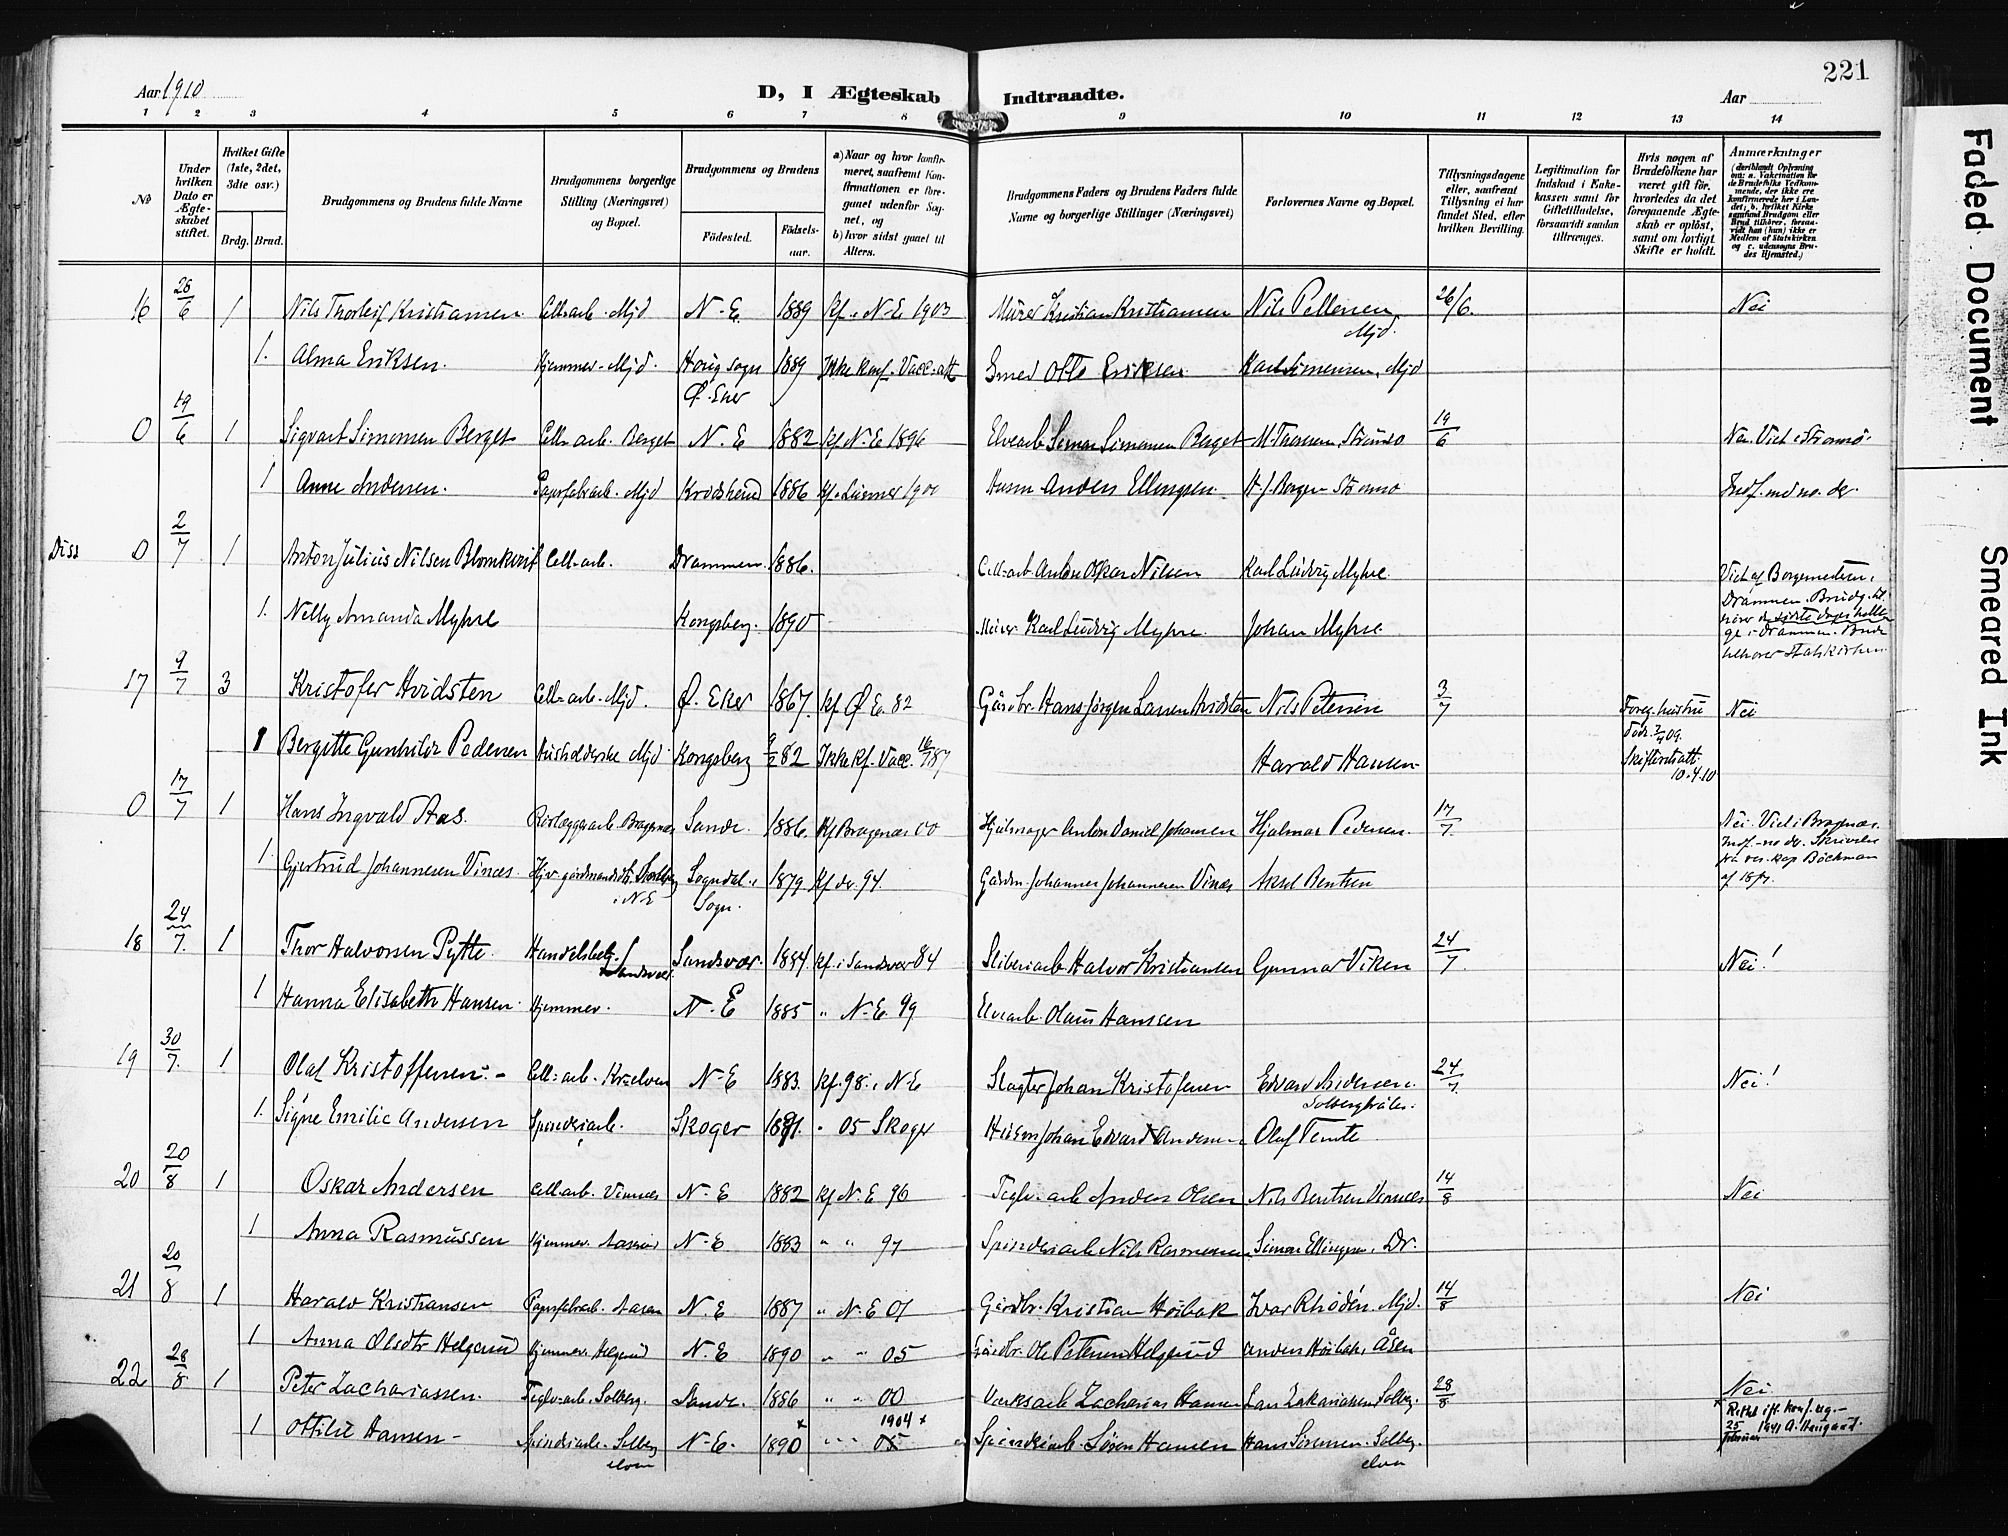 Aar 1910
D, I Ægteskab Indtraadte.
221
Aar
1 2 3 4 5 6 7 8 9 10 11 12 13 14
No
Under hvilken Dato er Ægteskabet stiftet.
Hvilket Gifte (1ste, 2det, 3dte osv.)
Brdg. Brud.
Brudgommens og Brudens fulde Navne
Brudgommens borgerlige Stilling (Næringsvei) og Bopæl.
Brudgommens og Brudens
Fødested.
Fødselsaar.
a) Naar og hvor konfirmeret, saafremt Konfirmationen er foregaaet udenfor Sognet, og
b) hvor sidst gaaet til Alters.
Brudgommens Faders og Brudens Faders fulde Navne og borgerlige Stillinger (Næringsvei)
Forlovernes Navne og Bopæl.
Tillysningsdagene eller, saafremt Tillysning ei har fundet Sted, efter hvilken Bevilling.
Legitimation for Indskud i Enkekassen samt for Giftetilladelse, forsaavidt saadan tiltrænges.
Hvis nogen af Brudefolkene har været gift før, hvorledes da det foregaaende Ægteskab er opløst, samt om lovligt Skifte er holdt.
Anmærkninger
(deriblandt Oplysning om: a. Vakcination for de Brudefolks Vedkommende, der ikke ere konfirmerede her i Landet; b. hvilket Kirkesamfund Brudgom eller Brud tilhører, forsaavidt han (hun) ikke er Medlem af Statskirken og c. udensogns Brudes Hjemsted.)
16 26/6 1 Nils Thorleif Kristiansen Cell.arb. Mjd N-E. 1889 Kf. i N-E 1903 Murer Kristian Kristiansen Nils Pettersen Mjd. 26/6. Nei
1. Alma Eriksen. Hjemmev. Mjd. Houg sogn Ø. Eker 1889 Ikke konf. Vacc. att Smed Otto Eriksen Karl Simensen, Mjd
0 19/6 1 Sigvart Simonsen Berget Cell.arb. Berget N. E 1882 Kf N-E 1896 Elvearb Simon Simonsen Berget M Thomsen, Strømsø 19/6 Nei. Viet i Strømsø.
1 Anne Andersen. Papirfabarb. Mjd Krødsherad 1886 Kf. i 1900 Husm Anders Ellingsen H. J. Borgen Strømsø Indf. md no. der.
Diss 0 2/7 1 Anton Julius Nilsen Blomkvist Cell.arb. Drammen. 1886. Cell.arb Anton Oskar Nilsen Karl Ludvig Myhre Viet af Borgemesteren i Drammen. Brudg. tilhører de sidste dages hellige i Drammen. Brude tilhører statskirken
1. Nelly Amanda Myhre Kongsberg. 1890 Murer Karl Ludvig Myhre. Johan Myhre
17 9/7 3 Kristofer Hvidsten Cell.arb. Mjd. Ø. Eker 1867. Kf Ø E. 82 Gårdbr. Hans Jørgen Larsen Hvidsten Nils Petersen 3/7 Foreg. hustru Død. 3/4 09. Skifteratt. 10.4.10 Nei
1 Bergitte Gunhilde Pedersen Husholderske Mjd Kongsberg 9/2 82 Ikke Kf. Vacc. 87 Harald Hansen
0 17/7 1 Hans Ingvald Aas. Rørlæggerarb. Bragernes Sande. 1886. Kf Bragernæs 00 Hjulmager Anton Daniel Johansen Hjalmar Pedersen. 17/7. Nei. Viet i Bragnæs. Indf. no der. Skrivelse fra res. kap Böckman af 18/7.
1. Gjertrud Johannesen Vines. i N-E Sogndal i Sogn. 1879. Kf der 94. Gårdm Johannes Johannesen Vines Aksel Bentsen
18 24/7. 1 Thor Halvorsen Pytte. Handelsbetj. Sandsvær Sandsvær. 1884 Kf. i Sandsvær 84 Sliberiarb Halvor Kristiansen Gunnar Viken 24/7. Nei!
1 Hanna Elisabeth Hansen. Hjemmev. N-E 1885 " N-E. 99 Elvearb. Olaus Hansen
19 30/7. 1 Olaf Kristoffersen.- Cell.arb. N-E 1883. Kf. 98. i N-E Slagter Johan Kristofersen Edvard Andersen. 24/7. Nei!
1. Signe Emilie Andersen Spinderiarb. Skoger 1881. " 05 Skoger Husm Johan Edvard Andersen Olaf Temte
20 20/8 1 Oskar Andersen Cell.arb. Vinnæs N-E 1882 Kf N-E 96 Teglv.arb Anders Olsen Nils Bentsen Vinnæs 14/8 Nei
1 Anna Rasmussen Hjemmev. N-E 1883 " " 97 Spinderiarb Nils Rasmussen Simon Ellingsen, Dr.
21 20/8 1 Harald Kristiansen Papirfabarb. Aasen N-E 1887 " N-E 01 Gårdbr. Kristian Høibak Ivar Rhodén. Mjd. 14/8 Nei
1 Anna Olsdtr Helgerud Hjemmev. Helgerud N-E 1890 " " 05 Gårdbr. Ole Petersen Helgerud Anders Høibak, Åsen
22 28/8 1 Peter Zachariassen. Teglv.arb. Solberg. Sande. 1886 " " 00 Værksarb Zacharias Hansen Lars Zakariassen, Solbg. 28/8 Nei.
1 Ottilie Hansen - Spinderiarb. Solberg elven N-E. 1890 x " " 05 1904 x Spinderiarb. Søren Hansen Hans Sørensen. Solberg. elven x Rettet ift. konf. reg.- 25 februar 1941 A. Haugaard.
Faded Document
Smeared Ink